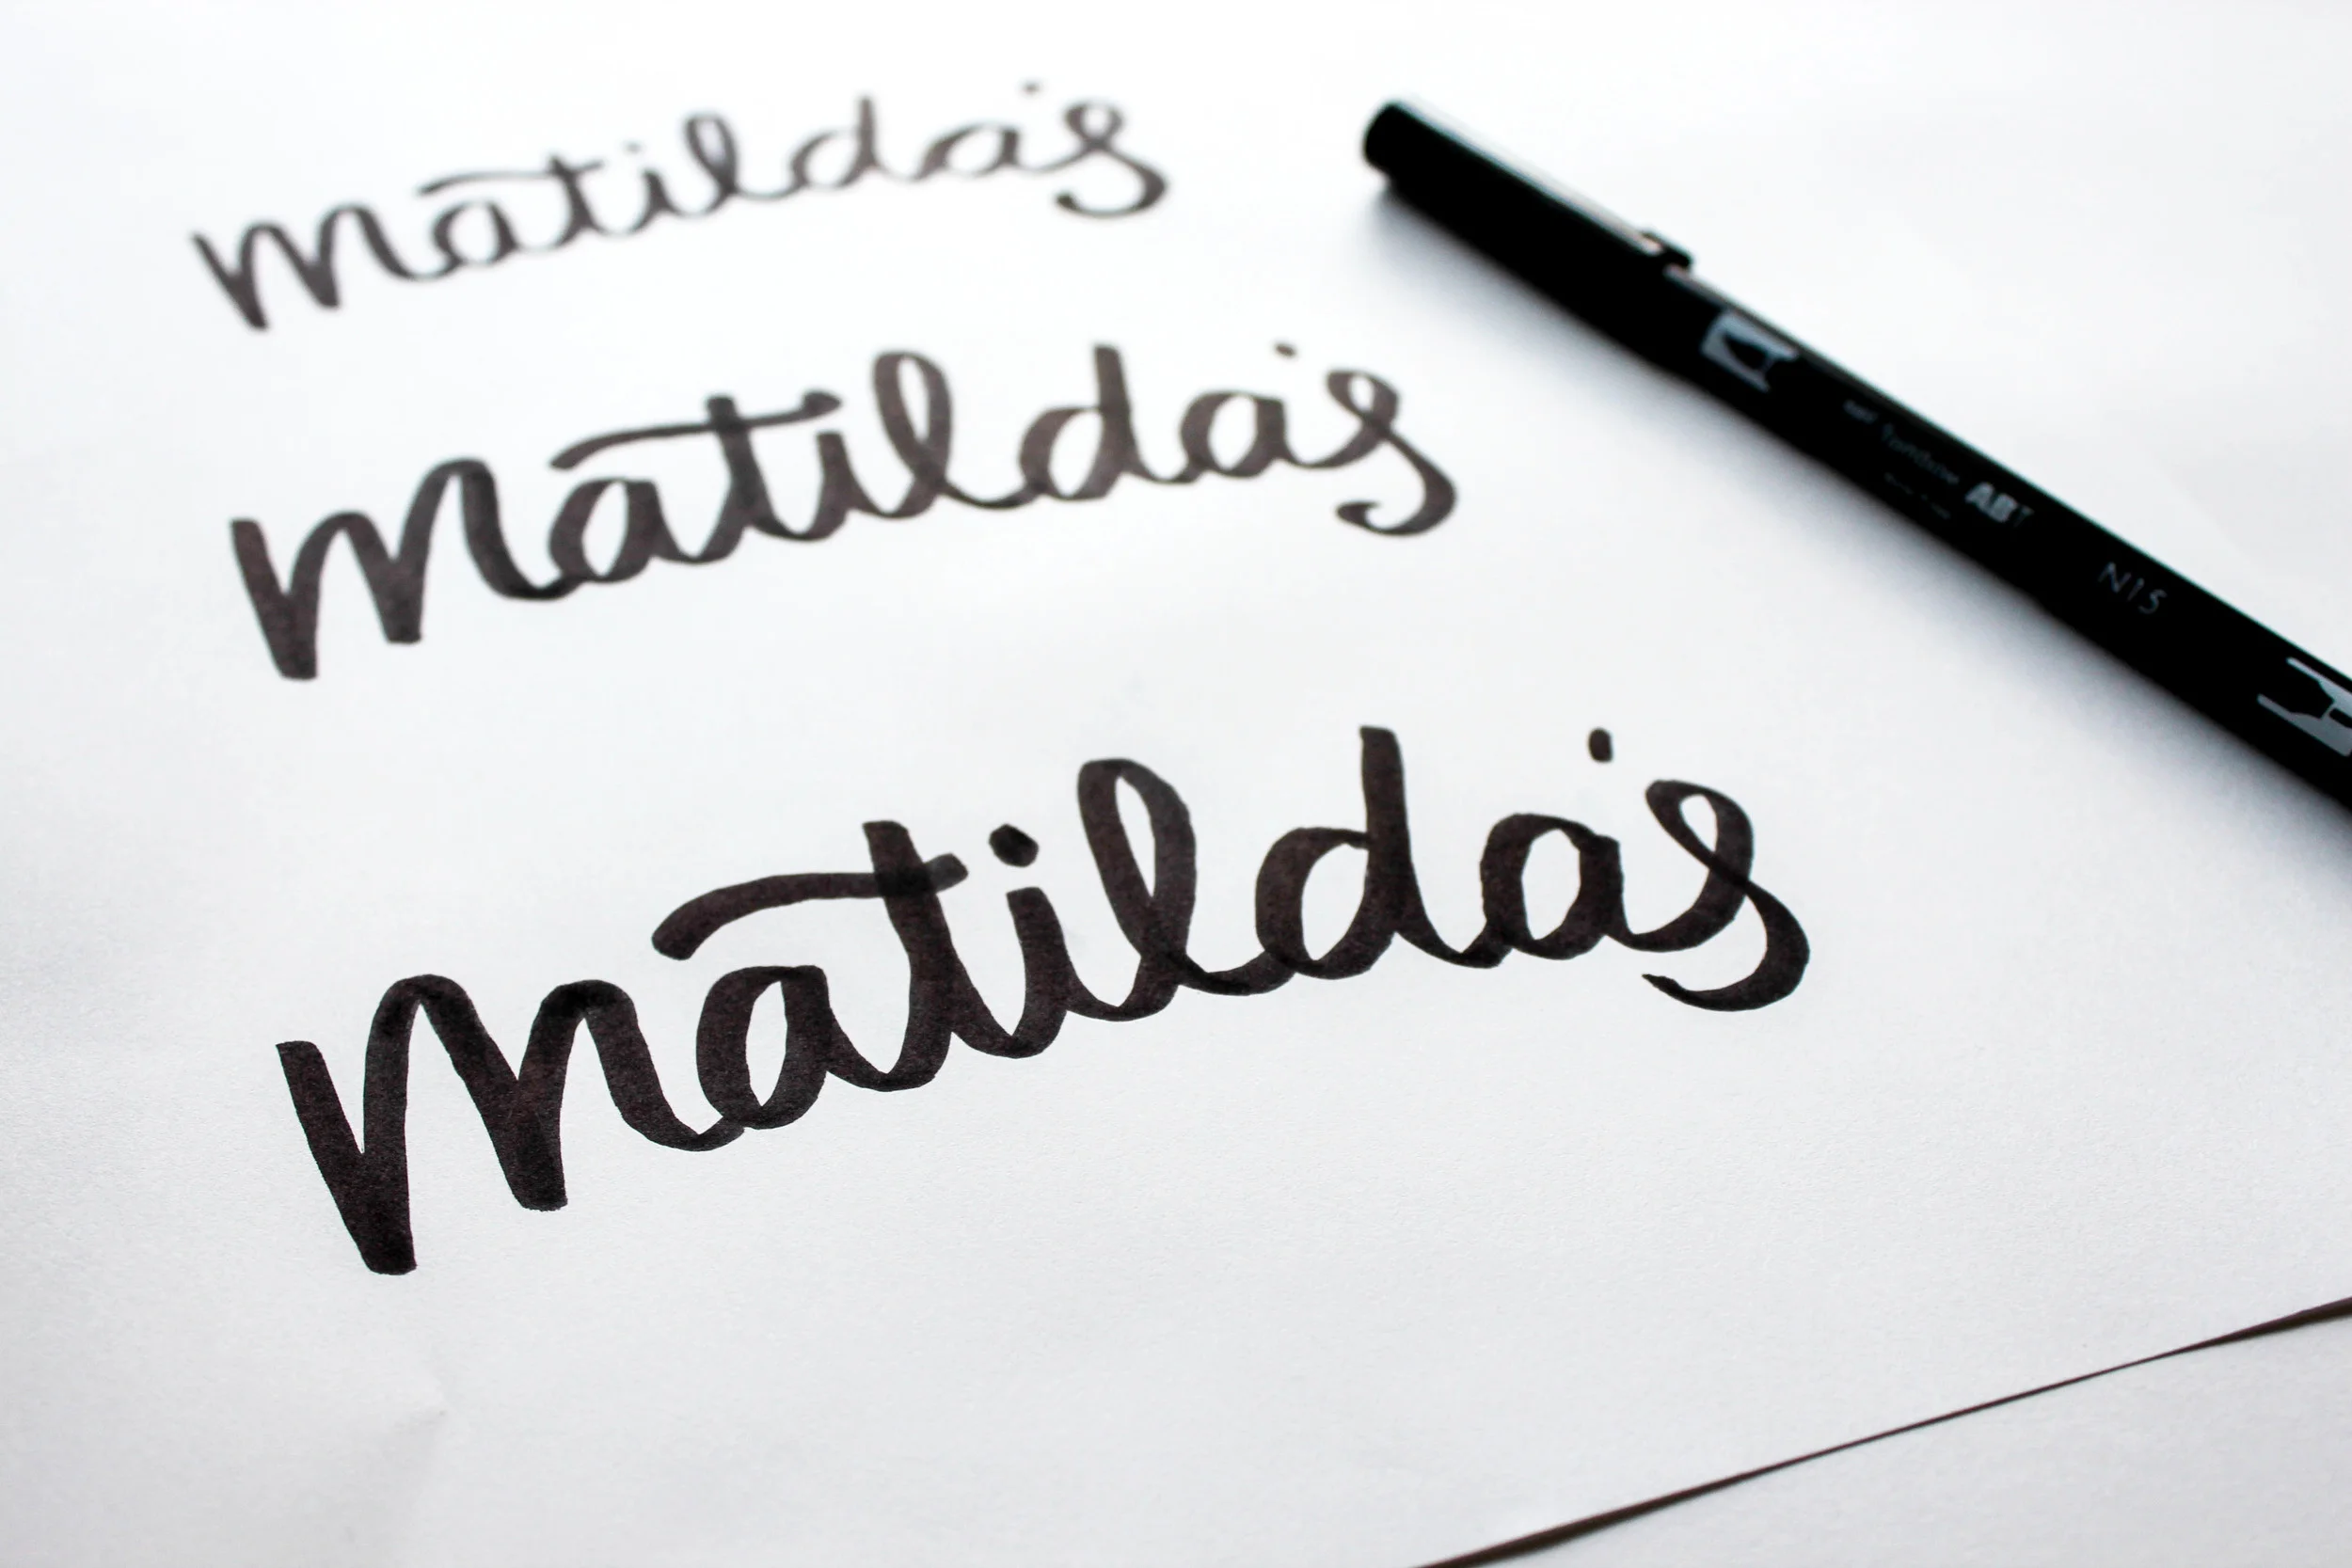 Matilda's
Matilda's
Matilda's
Tombow ABT
N15